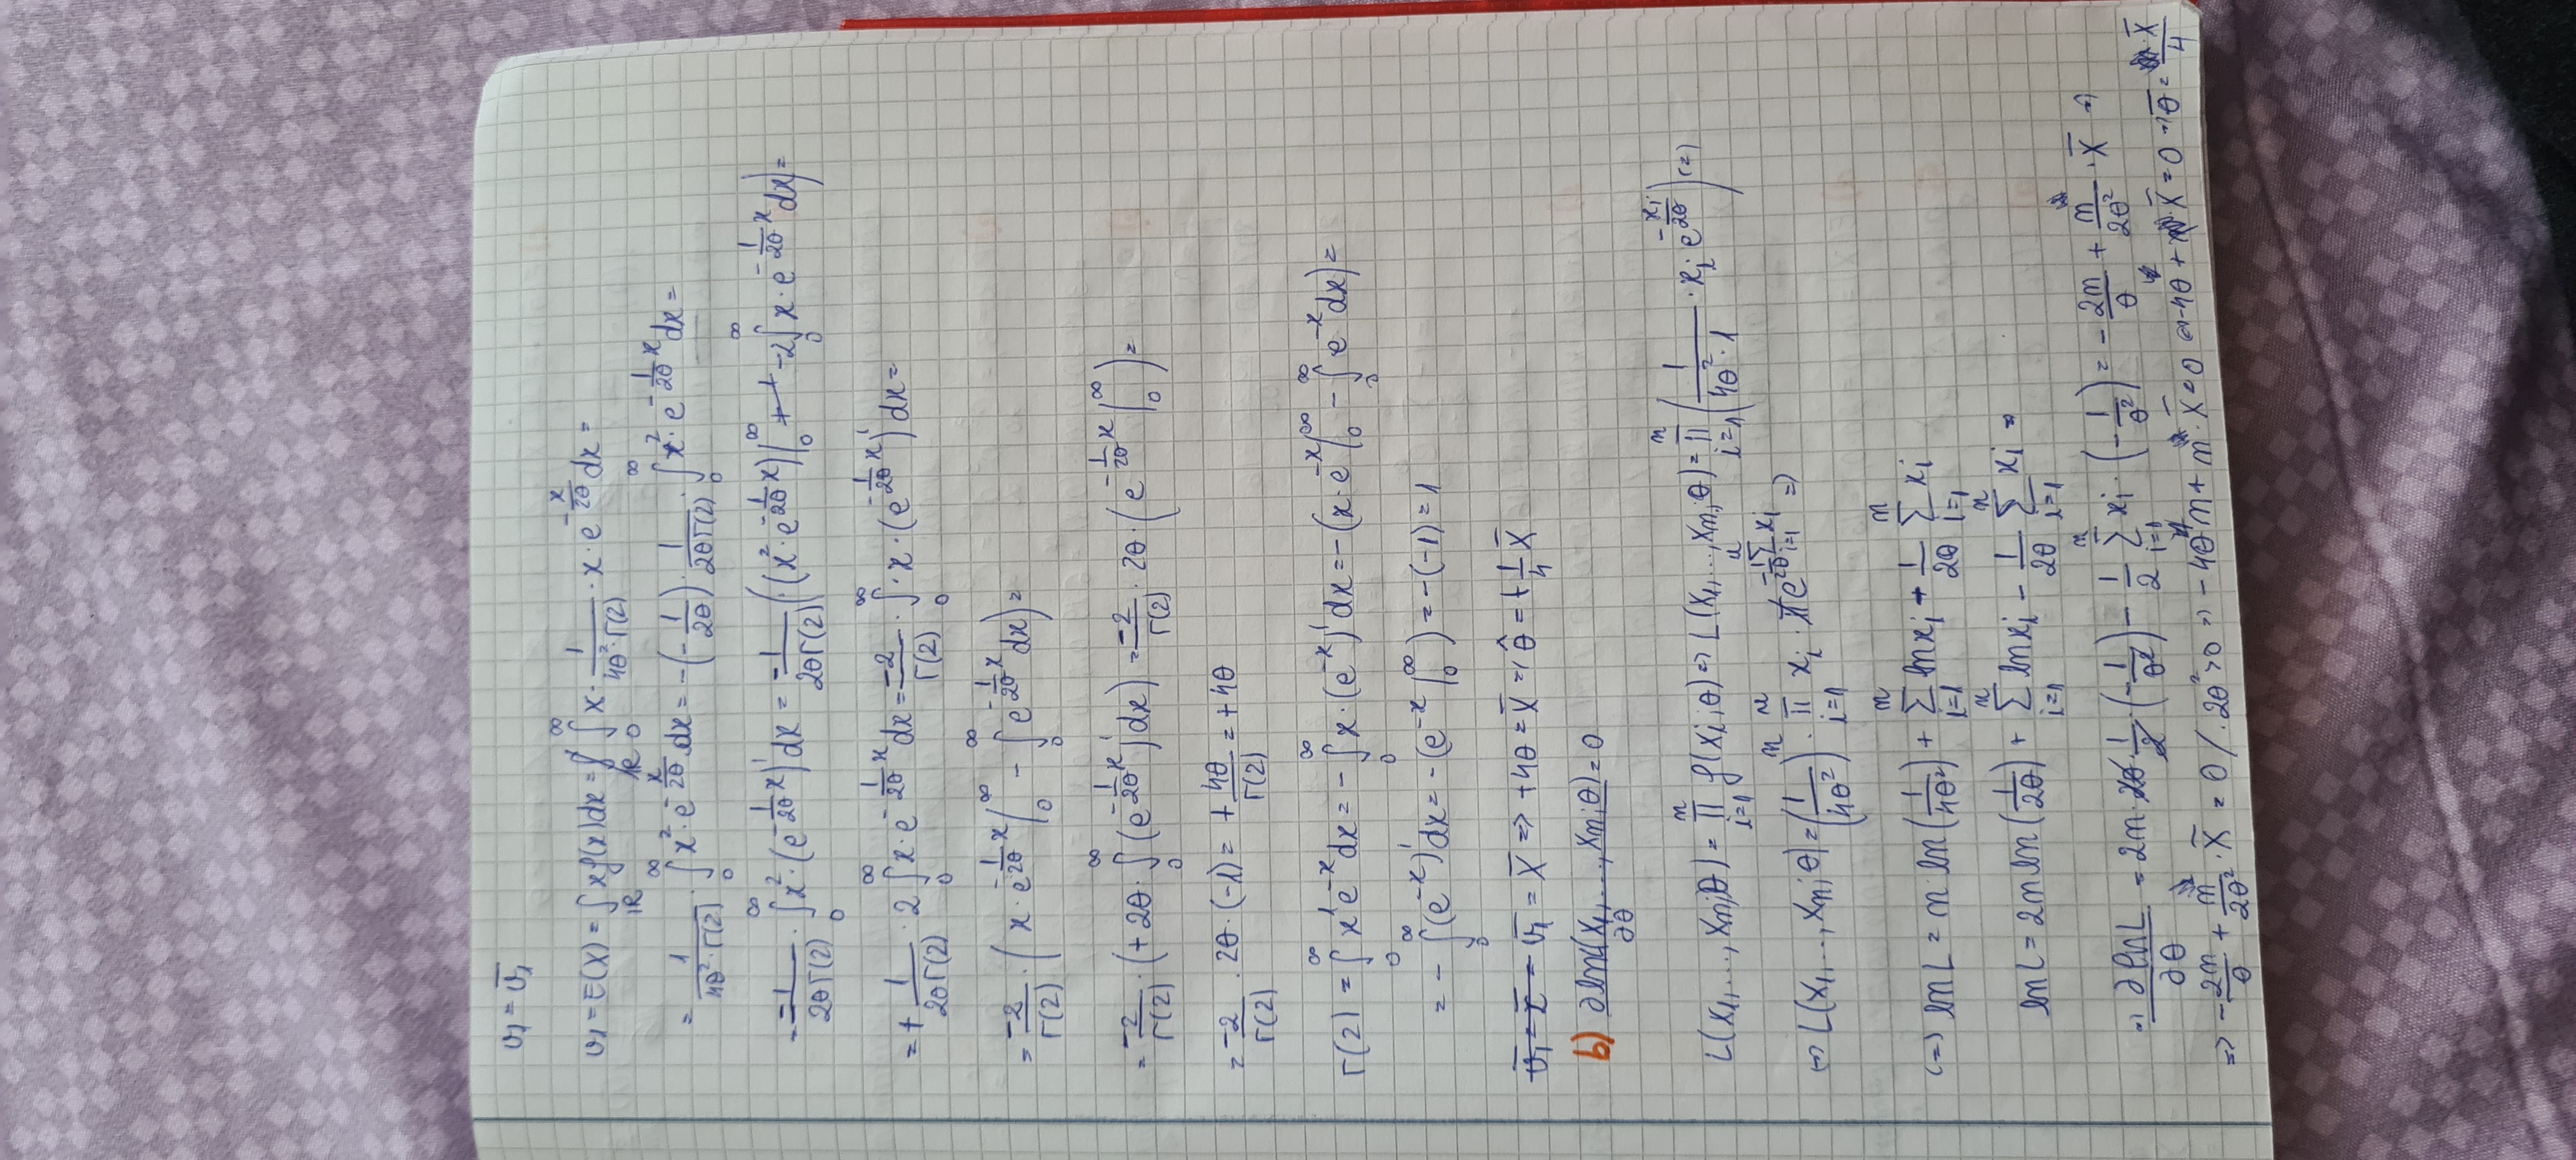 v₁ = v̄₁
v₁ = E(X) = ∫_ℝ x f(x) dx = ∫_0^∞ x · 1/(4θ²·Γ(2)) · x · e^(-x/2θ) dx =
= 1/(4θ²·Γ(2)) · ∫_0^∞ x² · e^(-x/2θ) dx = -(-1/2θ) · 1/(2θΓ(2)) · ∫_0^∞ x² · e^(-1/2θ x) dx =
= -1/(2θΓ(2)) · ∫_0^∞ x² · (e^(-1/2θ x))' dx = -1/(2θΓ(2)) ((x² · e^(-1/2θ x))|_0^∞ - 2∫_0^∞ x · e^(-1/2θ x) dx) =
= + 1/(2θΓ(2)) · 2 ∫_0^∞ x · e^(-1/2θ x) dx = -2/Γ(2) · ∫_0^∞ · x · (e^(-1/2θ x))' dx =
= -2/Γ(2) · (x · e^(-1/2θ x)|_0^∞ - ∫_0^∞ e^(-1/2θ x) dx) =
= -2/Γ(2) · (+2θ · ∫_0^∞ (e^(-1/2θ x))' dx) = -2/Γ(2) · 2θ · (e^(-1/2θ x)|_0^∞) =
= -2/Γ(2) · 2θ · (-1) = + 4θ/Γ(2) = +4θ
Γ(2) = ∫_0^∞ x¹ e^(-x) dx = -∫_0^∞ x · (e^(-x))' dx = -(x · e^(-x)|_0^∞ - ∫_0^∞ e^(-x) dx) =
= -∫_0^∞ (e^(-x))' dx = -(e^(-x)|_0^∞) = -(-1) = 1
v̄₁ = X̄ ⇒ +4θ = X̄ ⇒ θ̂ = +1/4 X̄
b) ∂lnL(x₁,...,xₙ;θ)/∂θ = 0
L(x₁,...,xₙ;θ) = ∏_{i=1}^n f(xᵢ;θ) ⇒ L(x₁,...,xₙ;θ) = ∏_{i=1}^n (1/(4θ²·1) · xᵢ e^(-xᵢ/2θ)) (=)
⇔ L(x₁,...,xₙ;θ) = (1/4θ²)^n · ∏_{i=1}^n xᵢ · e^(-1/2θ ∑_{i=1}^n xᵢ) ⇒
(=) ln L = n ln(1/4θ²) + ∑_{i=1}^n ln xᵢ - 1/2θ ∑_{i=1}^n xᵢ
ln L = 2n ln(1/2θ) + ∑_{i=1}^n ln xᵢ - 1/2θ ∑_{i=1}^n xᵢ ⇒
⇒ ∂lnL/∂θ = 2n · 2θ · 1/2 · (-1/θ²) - 1/2 ∑_{i=1}^n xᵢ · (-1/θ²) = -2n/θ + n/2θ² · X̄ ⇒
⇒ -2n/θ + n/2θ² · X̄ = 0 / · 2θ² > 0 ⇒ -4θn + n · X̄ = 0 ⇔ -4θ + X̄ = 0 ⇒ θ̄ = X̄/4